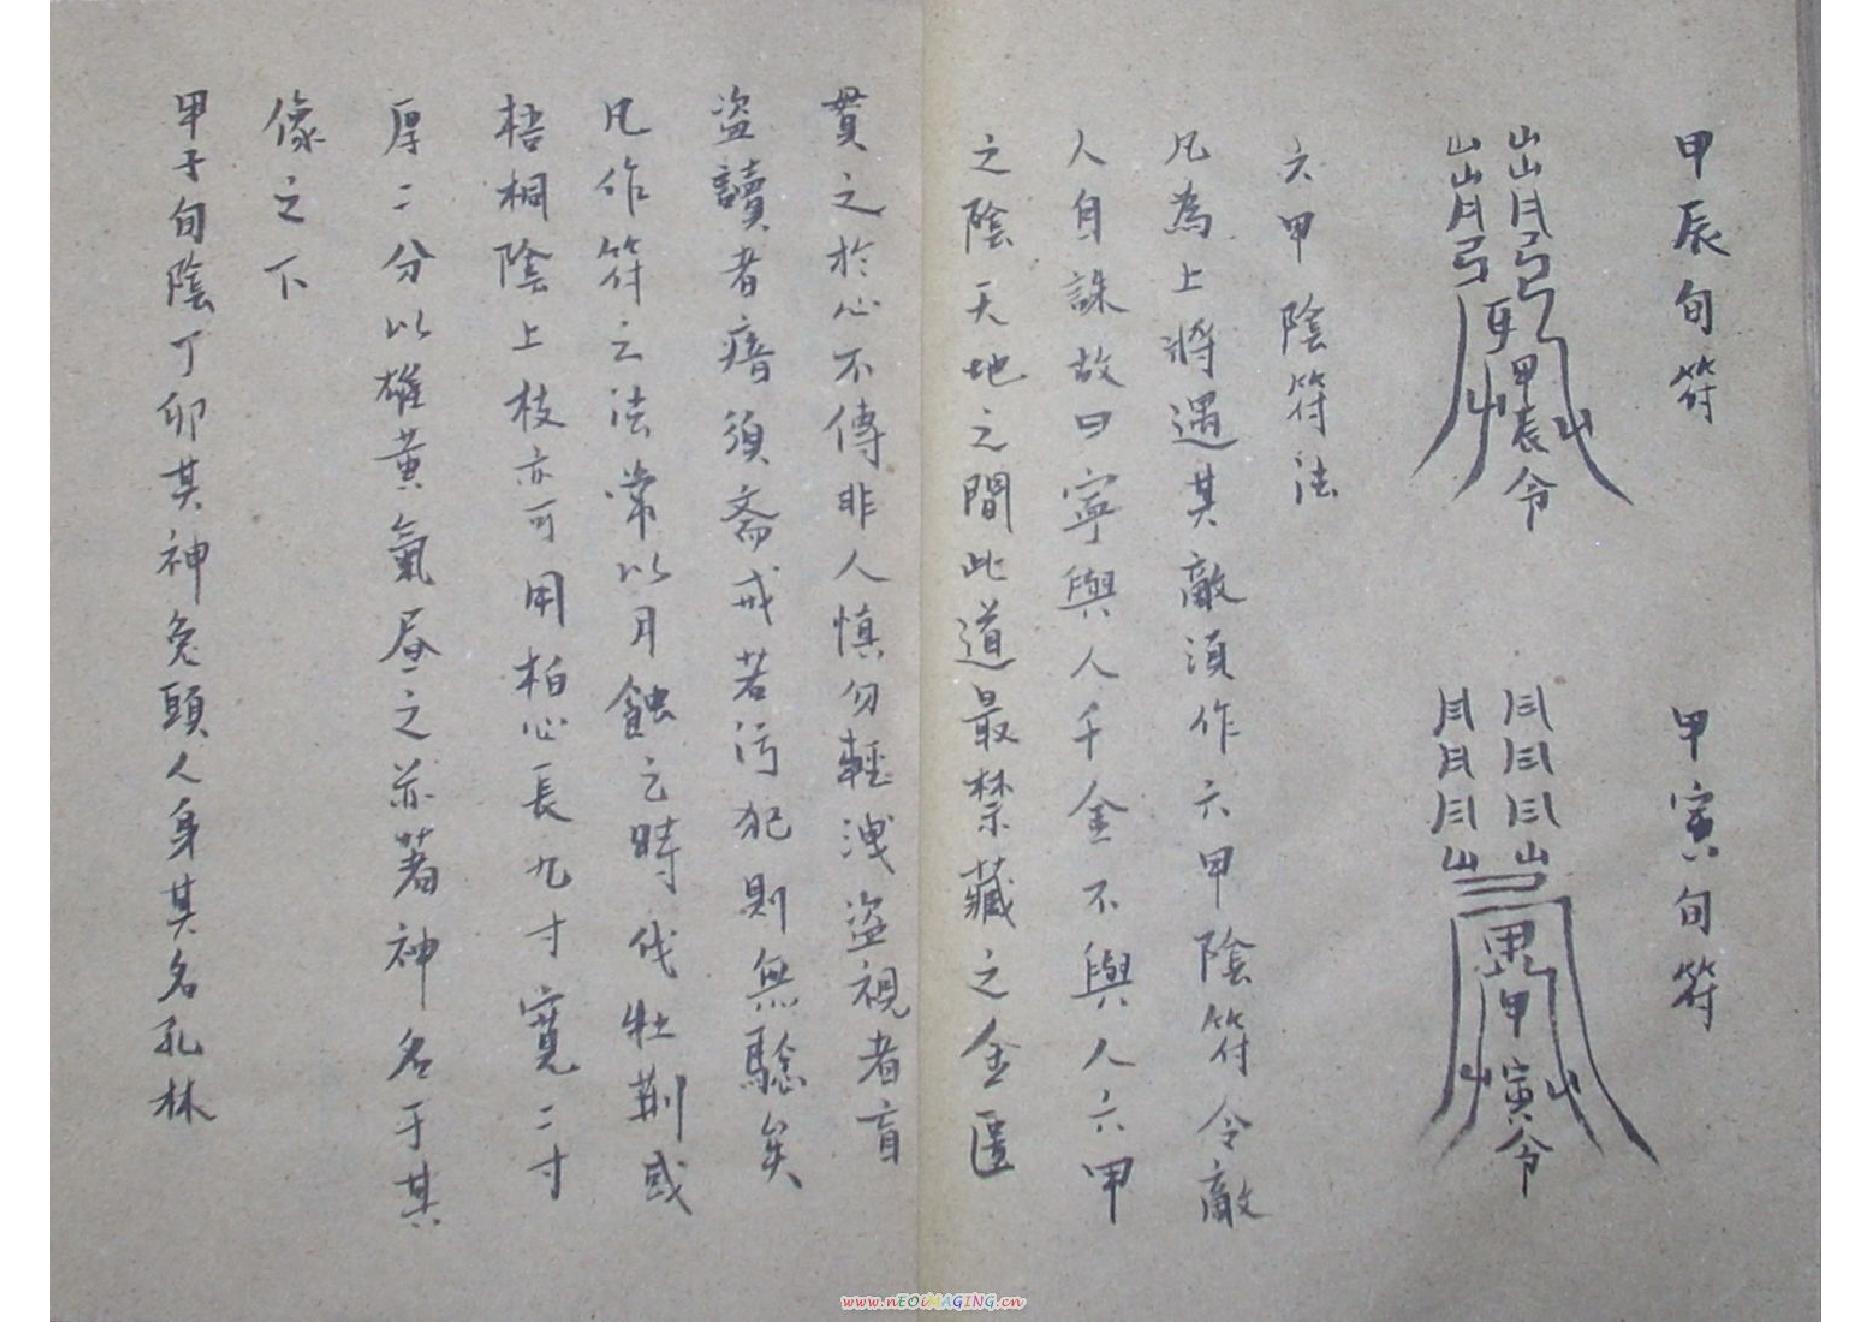 甲辰旬符
甲辰令
甲寅旬符
甲寅令
六甲陰符法
凡為上將遇其敵須作六甲陰符令敵
人自誅故曰寧與人千金不與人六甲
之陰天地之間此道最禁藏之金匱
貫之於心不傳非人慎勿輕洩盜視者盲
盜讀者瘖須斎戒若污犯則無驗矣
凡作符之法常以月蝕之時伐牡荆或
梧桐陰上枝亦可用柏心長九寸寬二寸
厚二分以雄黄氣昼之并著神名于其
像之下
甲子旬陰丁卯其神兔頭人身其名孔林
www.nEOiMAGING.cn